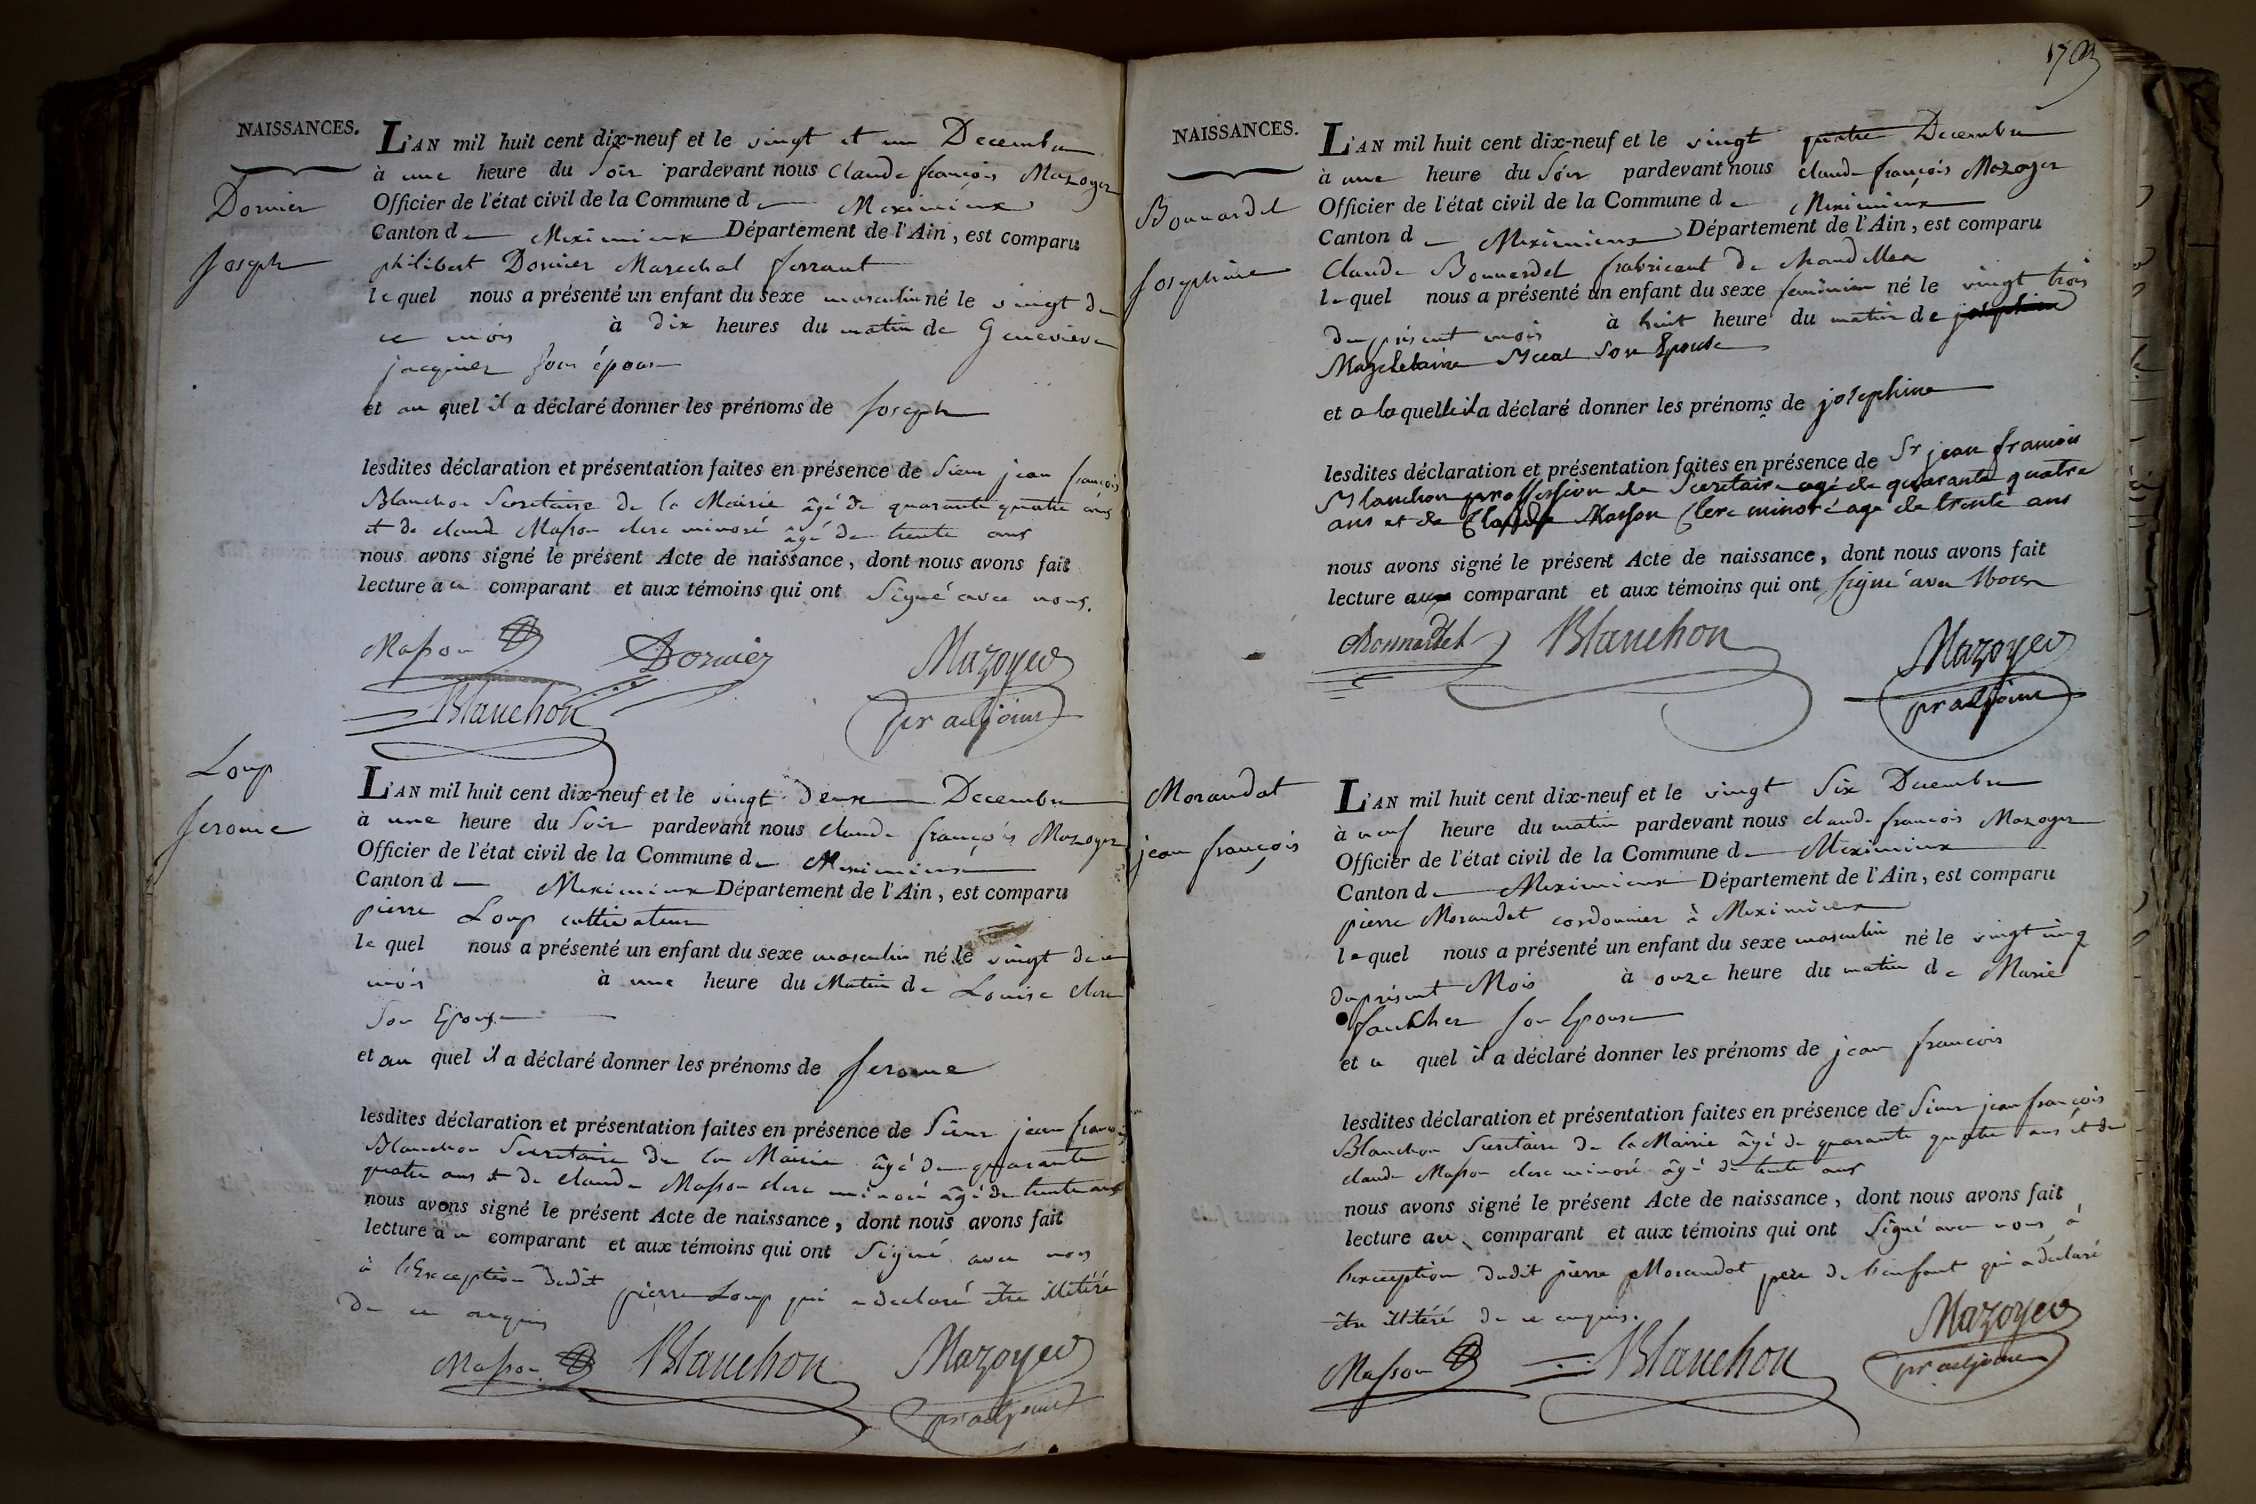 NAISSANCES.
Dornier
Joseph
L'AN mil huit cent dix-neuf et le vingt et un Decembre
à une heure du Soir pardevant nous Claude françois Mazoyer
Officier de l'état civil de la Commune de Meximieux
Canton de Meximieux Département de l'Ain, est comparu
philibert Dornier Marechal ferrant
lequel nous a présenté un enfant du sexe masculin né le vingt de
ce mois à dix heures du matin de Genevieve
jacquier son épouse
et au quel il a déclaré donner les prénoms de Joseph
lesdites déclaration et présentation faites en présence de Sieur jean françois
Blanchon Secretaire de la Mairie âgé de quarante quatre ans
et de claude Masson clerc minoré âgé de trente ans
nous avons signé le présent Acte de naissance, dont nous avons fait
lecture au comparant et aux témoins qui ont Signé avec nous.
Masson Dornier Mazoyer
Blanchon pr adjoint
Loup
Jerome
L'AN mil huit cent dix-neuf et le vingt deux Decembre
à une heure du Soir pardevant nous claude françois Mazoyer
Officier de l'état civil de la Commune de Meximieux
Canton de Meximieux Département de l'Ain, est comparu
pierre Loup cultivateur
lequel nous a présenté un enfant du sexe masculin né le vingt de ce
mois à une heure du Matin de Louise clerc
Son Epouse
et au quel il a déclaré donner les prénoms de Jerome
lesdites déclaration et présentation faites en présence de Sieur jean françois
Blanchon Secretaire de la Mairie âgé de quarante
quatre ans et de claude Masson clerc minoré âgé de trente ans
nous avons signé le présent Acte de naissance, dont nous avons fait
lecture au comparant et aux témoins qui ont Signé avec nous
à l'Exception dudit pierre Loup qui a declaré être illitéré
de ce enquis
Masson Blanchon Mazoyer
pr adjoint
NAISSANCES.
Bonnardel
Josephine
L'AN mil huit cent dix-neuf et le vingt quatre Decembre
à une heure du Soir pardevant nous claude françois Mazoyer
Officier de l'état civil de la Commune de Meximieux
Canton de Meximieux Département de l'Ain, est comparu
Claude Bonnardel fabricant de chandelles
lequel nous a présenté un enfant du sexe feminin né le vingt trois
du présent mois à huit heure du matin de josephine
Magdelaine son Epouse
et a laquelle il a déclaré donner les prénoms de josephine
lesdites déclaration et présentation faites en présence de Sr jean francois
Blanchon proffession de Secretaire agé de quarante quatre
ans et de Claude Masson Clerc minoré agé de trente ans
nous avons signé le présent Acte de naissance, dont nous avons fait
lecture au comparant et aux témoins qui ont signé avec Nous
Bonnardel Blanchon Mazoyer
pr adjoint
Morandat
jean françois
L'AN mil huit cent dix-neuf et le vingt Six Decembre
à neuf heure du matin pardevant nous claude francois Mazoyer
Officier de l'état civil de la Commune de Meximieux
Canton de Meximieux Département de l'Ain, est comparu
pierre Morandat cordonnier à Meximieux
lequel nous a présenté un enfant du sexe masculin né le vingt cinq
du présent Mois à onze heure du matin de Marie
faucher son Epouse
et a quel il a déclaré donner les prénoms de jean francois
lesdites déclaration et présentation faites en présence de Sieur jean françois
Blanchon Secretaire de la Mairie âgé de quarante quatre ans et de
claude Masson clerc minoré âgé de trente ans
nous avons signé le présent Acte de naissance, dont nous avons fait
lecture au comparant et aux témoins qui ont Signé avec nous à
l'exception dudit pierre Morandat pere de l'enfant qui a declaré
être illitéré de ce enquis.
Masson Blanchon Mazoyer
pr adjoint